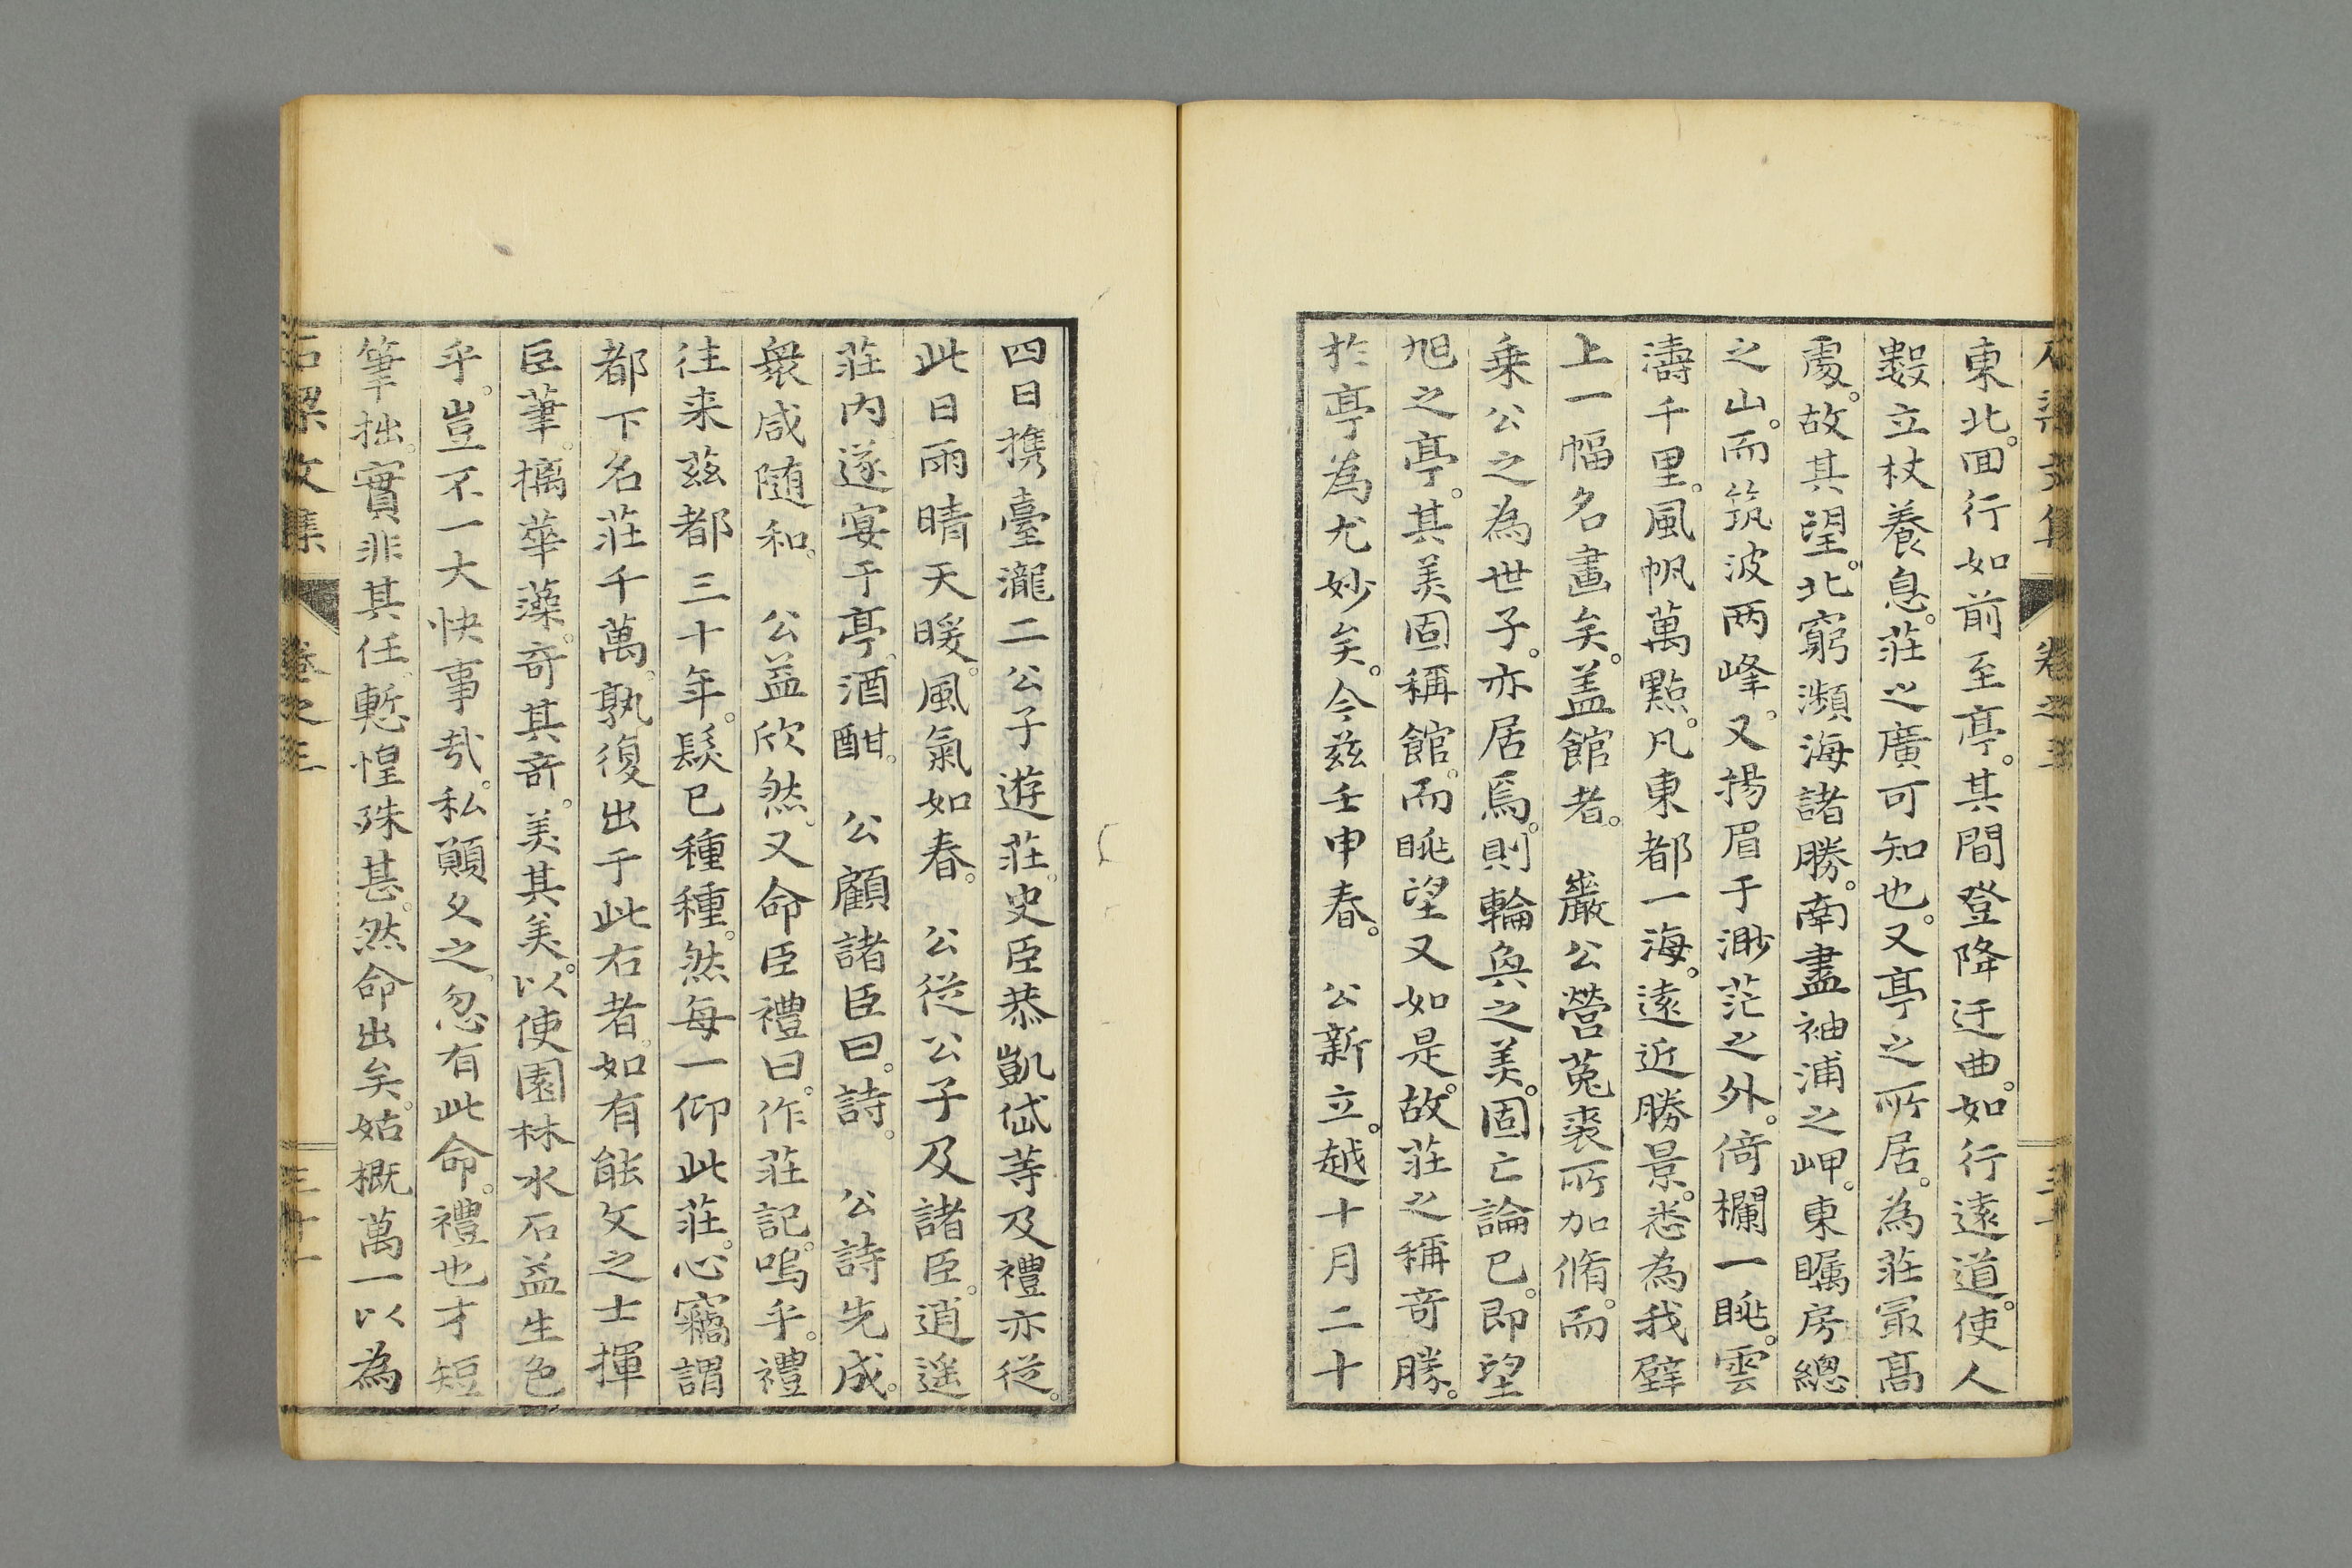 東北。回行如前至亭。其間登降迂曲。如行遠道。使人
數立杖養息。莊之廣可知也。又亭之所居。為莊冣髙
處。故其望。北窮瀕海諸勝。南盡袖浦之岬。東矚房總
之山。而筑波两峰。又揚眉于渺茫之外。倚欄一眺。雲
濤千里。風帆萬點。凡東都一海。遠近勝景。悉為我壁
上一幅名畫矣。盖館者。　巖公營菟裘所加脩。而
乗公之為世子。亦居焉。則輪奐之美。固亡論已。即望
旭之亭。其美固稱館。而眺望又如是。故莊之稱竒勝。
於亭為尤妙矣。今兹壬申春。　公新立。越十月二十
四日携臺瀧二公子遊莊。史臣恭凱岱等及禮亦從。
此日雨晴天暖。風氣如春。　公從公子及諸臣。逍遥
莊内。遂宴于亭。酒酣。　公顧諸臣曰。詩。　公詩先成。
衆咸随和。　公益欣然。又命臣禮曰。作莊記。嗚乎。禮
往来兹都三十年。髮已種種。然每一仰此莊。心竊謂
都下名莊千萬。孰復出于此右者。如有能文之士揮
巨筆。摛華藻。竒其竒。美其美。以使園林水石益生色
乎。豈不一大快事哉。私願久之。忽有此命。禮也才短
筆拙。實非其任。慙惶殊甚。然命出矣。姑概萬一以為
石梁文集　卷之三